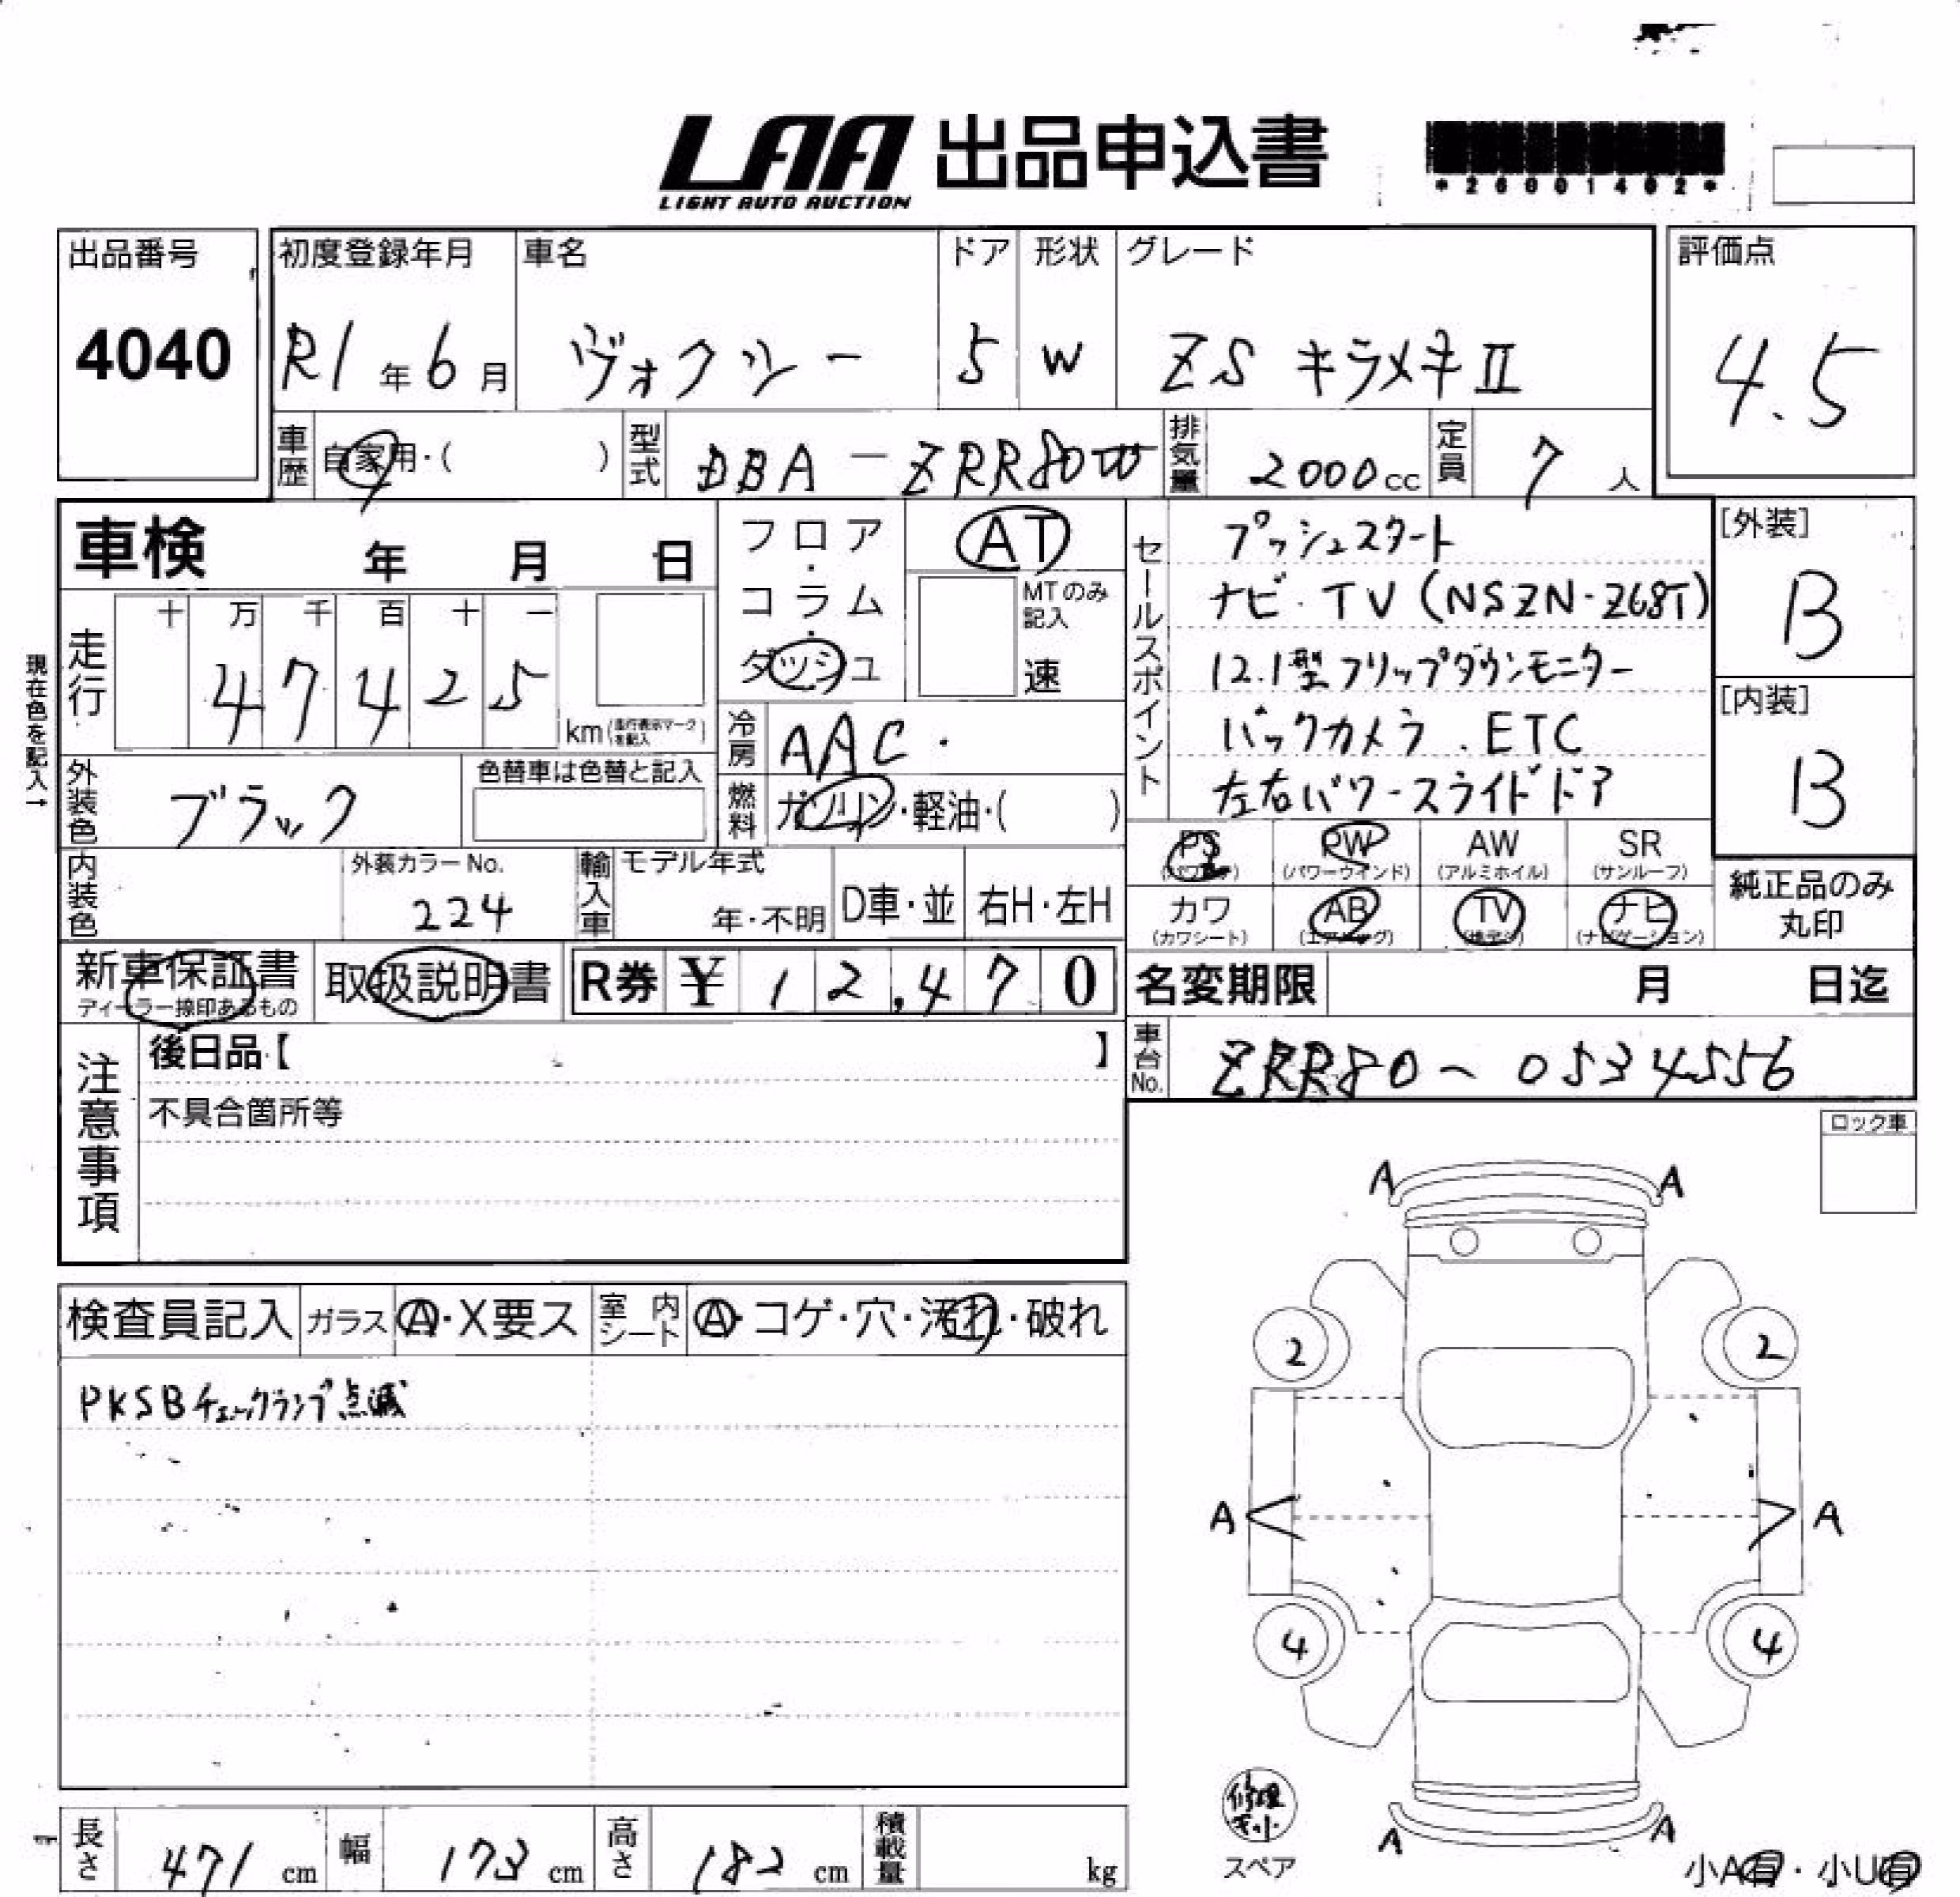 LAA 出品申込書
LIGHT AUTO AUCTION
*26001402*
出品番号
4040
初度登録年月
R1年6月
車名
ヴォクシー
ドア
5
形状
W
グレード
ZS キラメキⅡ
評価点
4.5
車歴
自家用・( )
型式
DBA-ZRR80W
排気量
2000cc
定員
7人
車検 年 月 日
フロア・
コラム・
ダッシュ
AT
MTのみ
記入
速
セールスポイント
プッシュスタート
ナビ・TV(NSZN-Z68T)
12.1型フリップダウンモニター
バックカメラ.ETC
左右パワースライドドア
[外装]
B
[内装]
B
現在色を記入→
走行
十 万 千 百 十 一
4 7 4 2 5
km(走行表示マークを記入)
冷房
AAC.
燃料
ガソリン・軽油・( )
外装色
ブラック
色替車は色替と記入
内装色
外装カラーNo.
224
輸入車
モデル年式
年・不明
D車・並
右H・左H
PS PW AW SR
(パワステ) (パワーウインド) (アルミホイル) (サンルーフ)
カワ AB TV ナビ
(カワシート) (エアバッグ) (地デジ) (ナビゲーション)
純正品のみ
丸印
新車保証書
ディーラー捺印あるもの
取扱説明書
R券 ¥ 12,470
名変期限 月 日迄
車台No.
ZRR80-0534556
注意事項
後日品【 】
不具合箇所等
ロック車
検査員記入
ガラス
A・X要ス
室内シート
A・コゲ・穴・汚れ・破れ
PKSBチェックランプ点滅
A A
2 2
A A
4 4
A A
修理キット
スペア
小A有・小U有
長さ 471cm
幅 173cm
高さ 182cm
積載量 kg